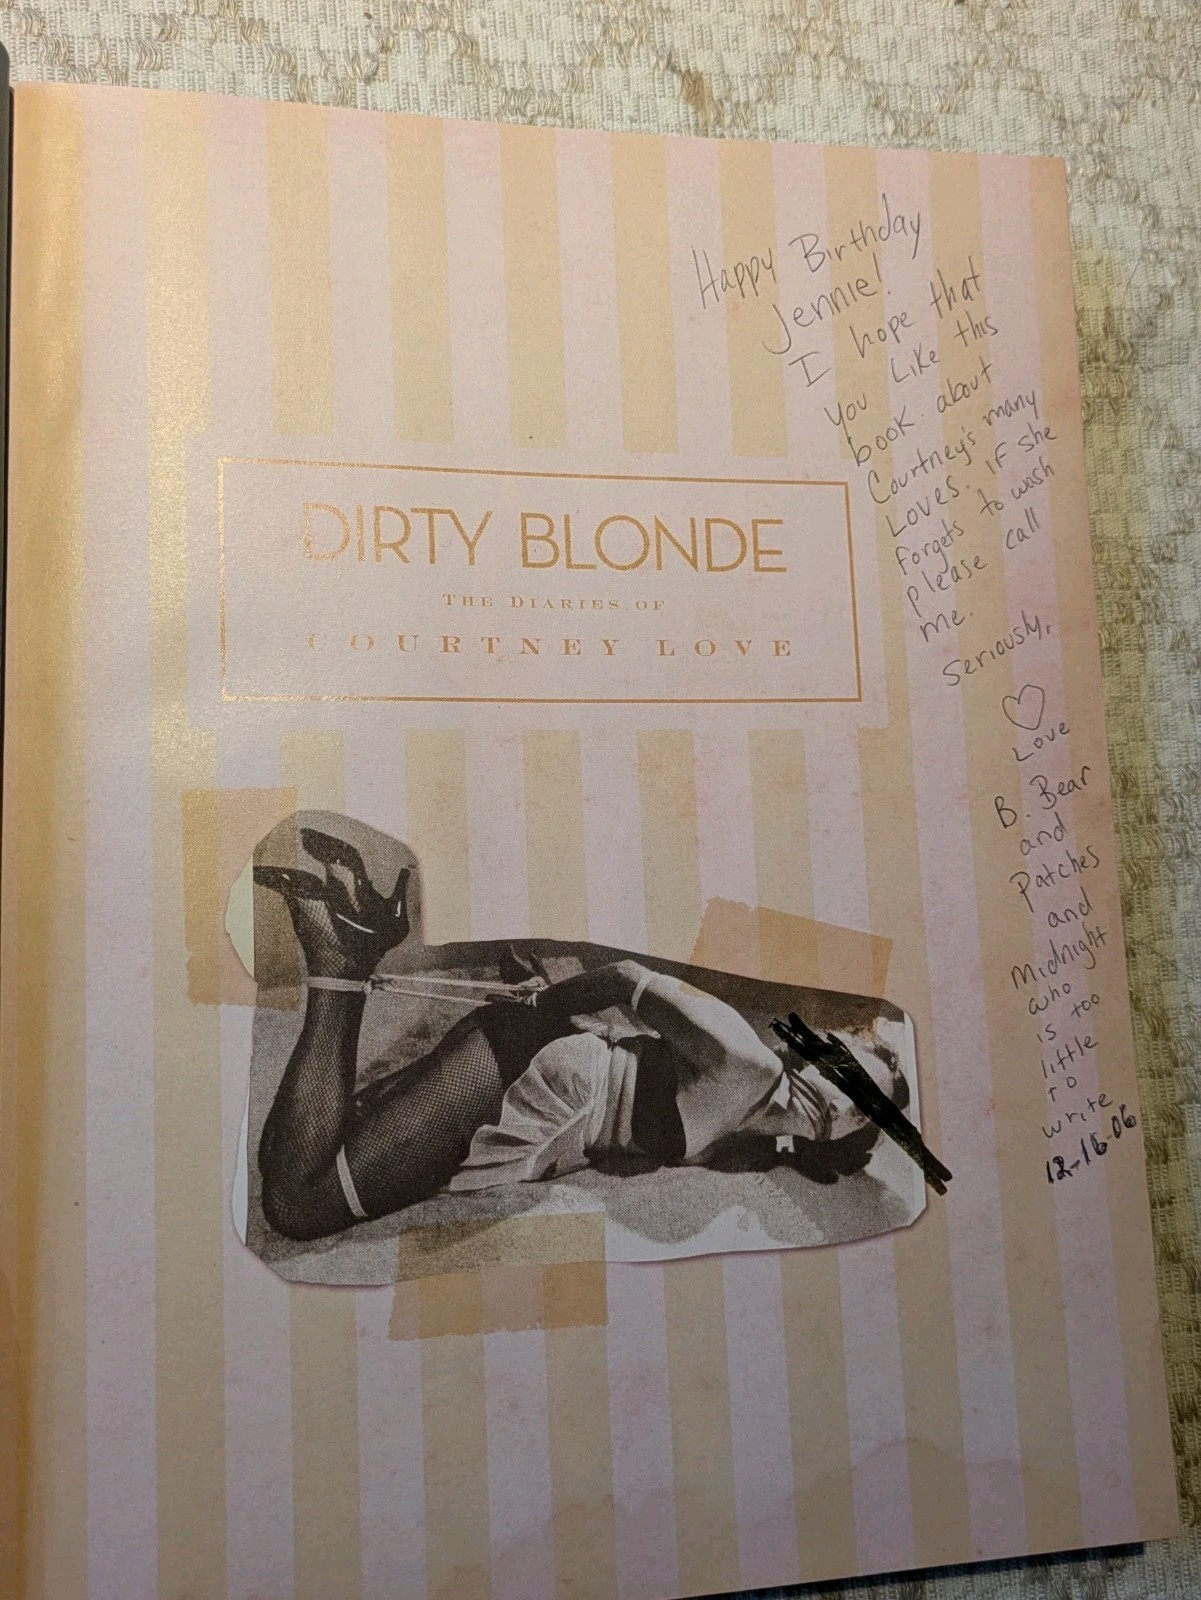 Happy Birthday
Jennie!
I hope that
you Like this
book about
Courtney's many
Loves. IF she
forgets to wash
please call
me.
Seriously,
Love
B. Bear
and
Patches
and
Midnight
who
is too
little
to
write
12-16-06
DIRTY BLONDE
THE DIARIES OF
COURTNEY LOVE